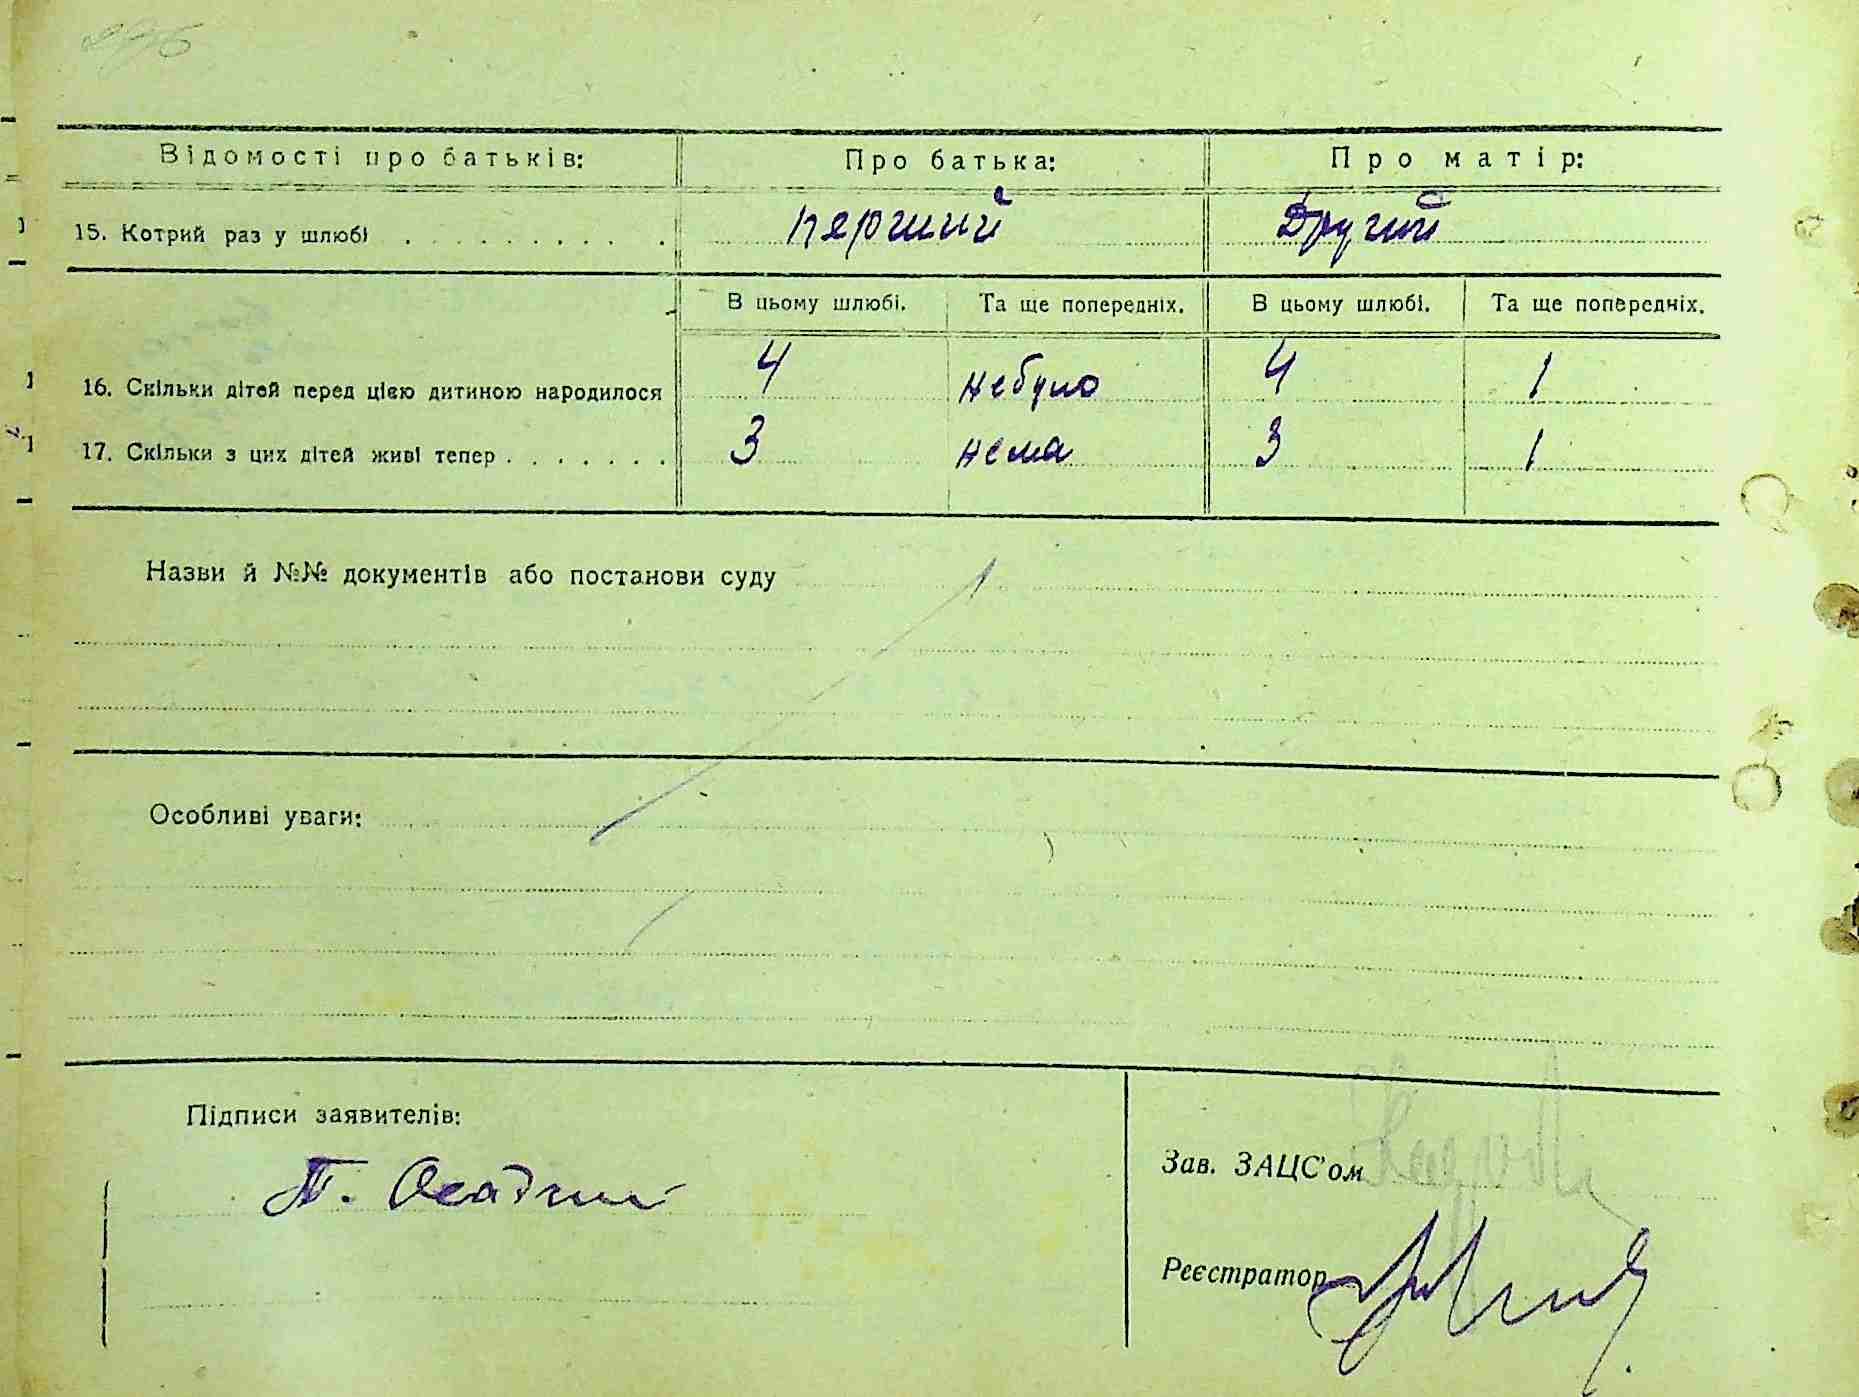 Відомості про батьків: Про батька: Про матір:
15. Котрий раз у шлюбі . . . . . . . . . . перший Другий
В цьому шлюбі. Та ще попередніх. В цьому шлюбі. Та ще попередніх.
16. Скільки дітей перед цією дитиною народилося 4 небуло 4 1
17. Скільки з цих дітей живі тепер . . . . . . . 3 нема 3 1
Назви й №№ документів або постанови суду
Особливі уваги:
Підписи заявителів:
Зав. ЗАЦС'ом
П. Осадчий
Реєстратор